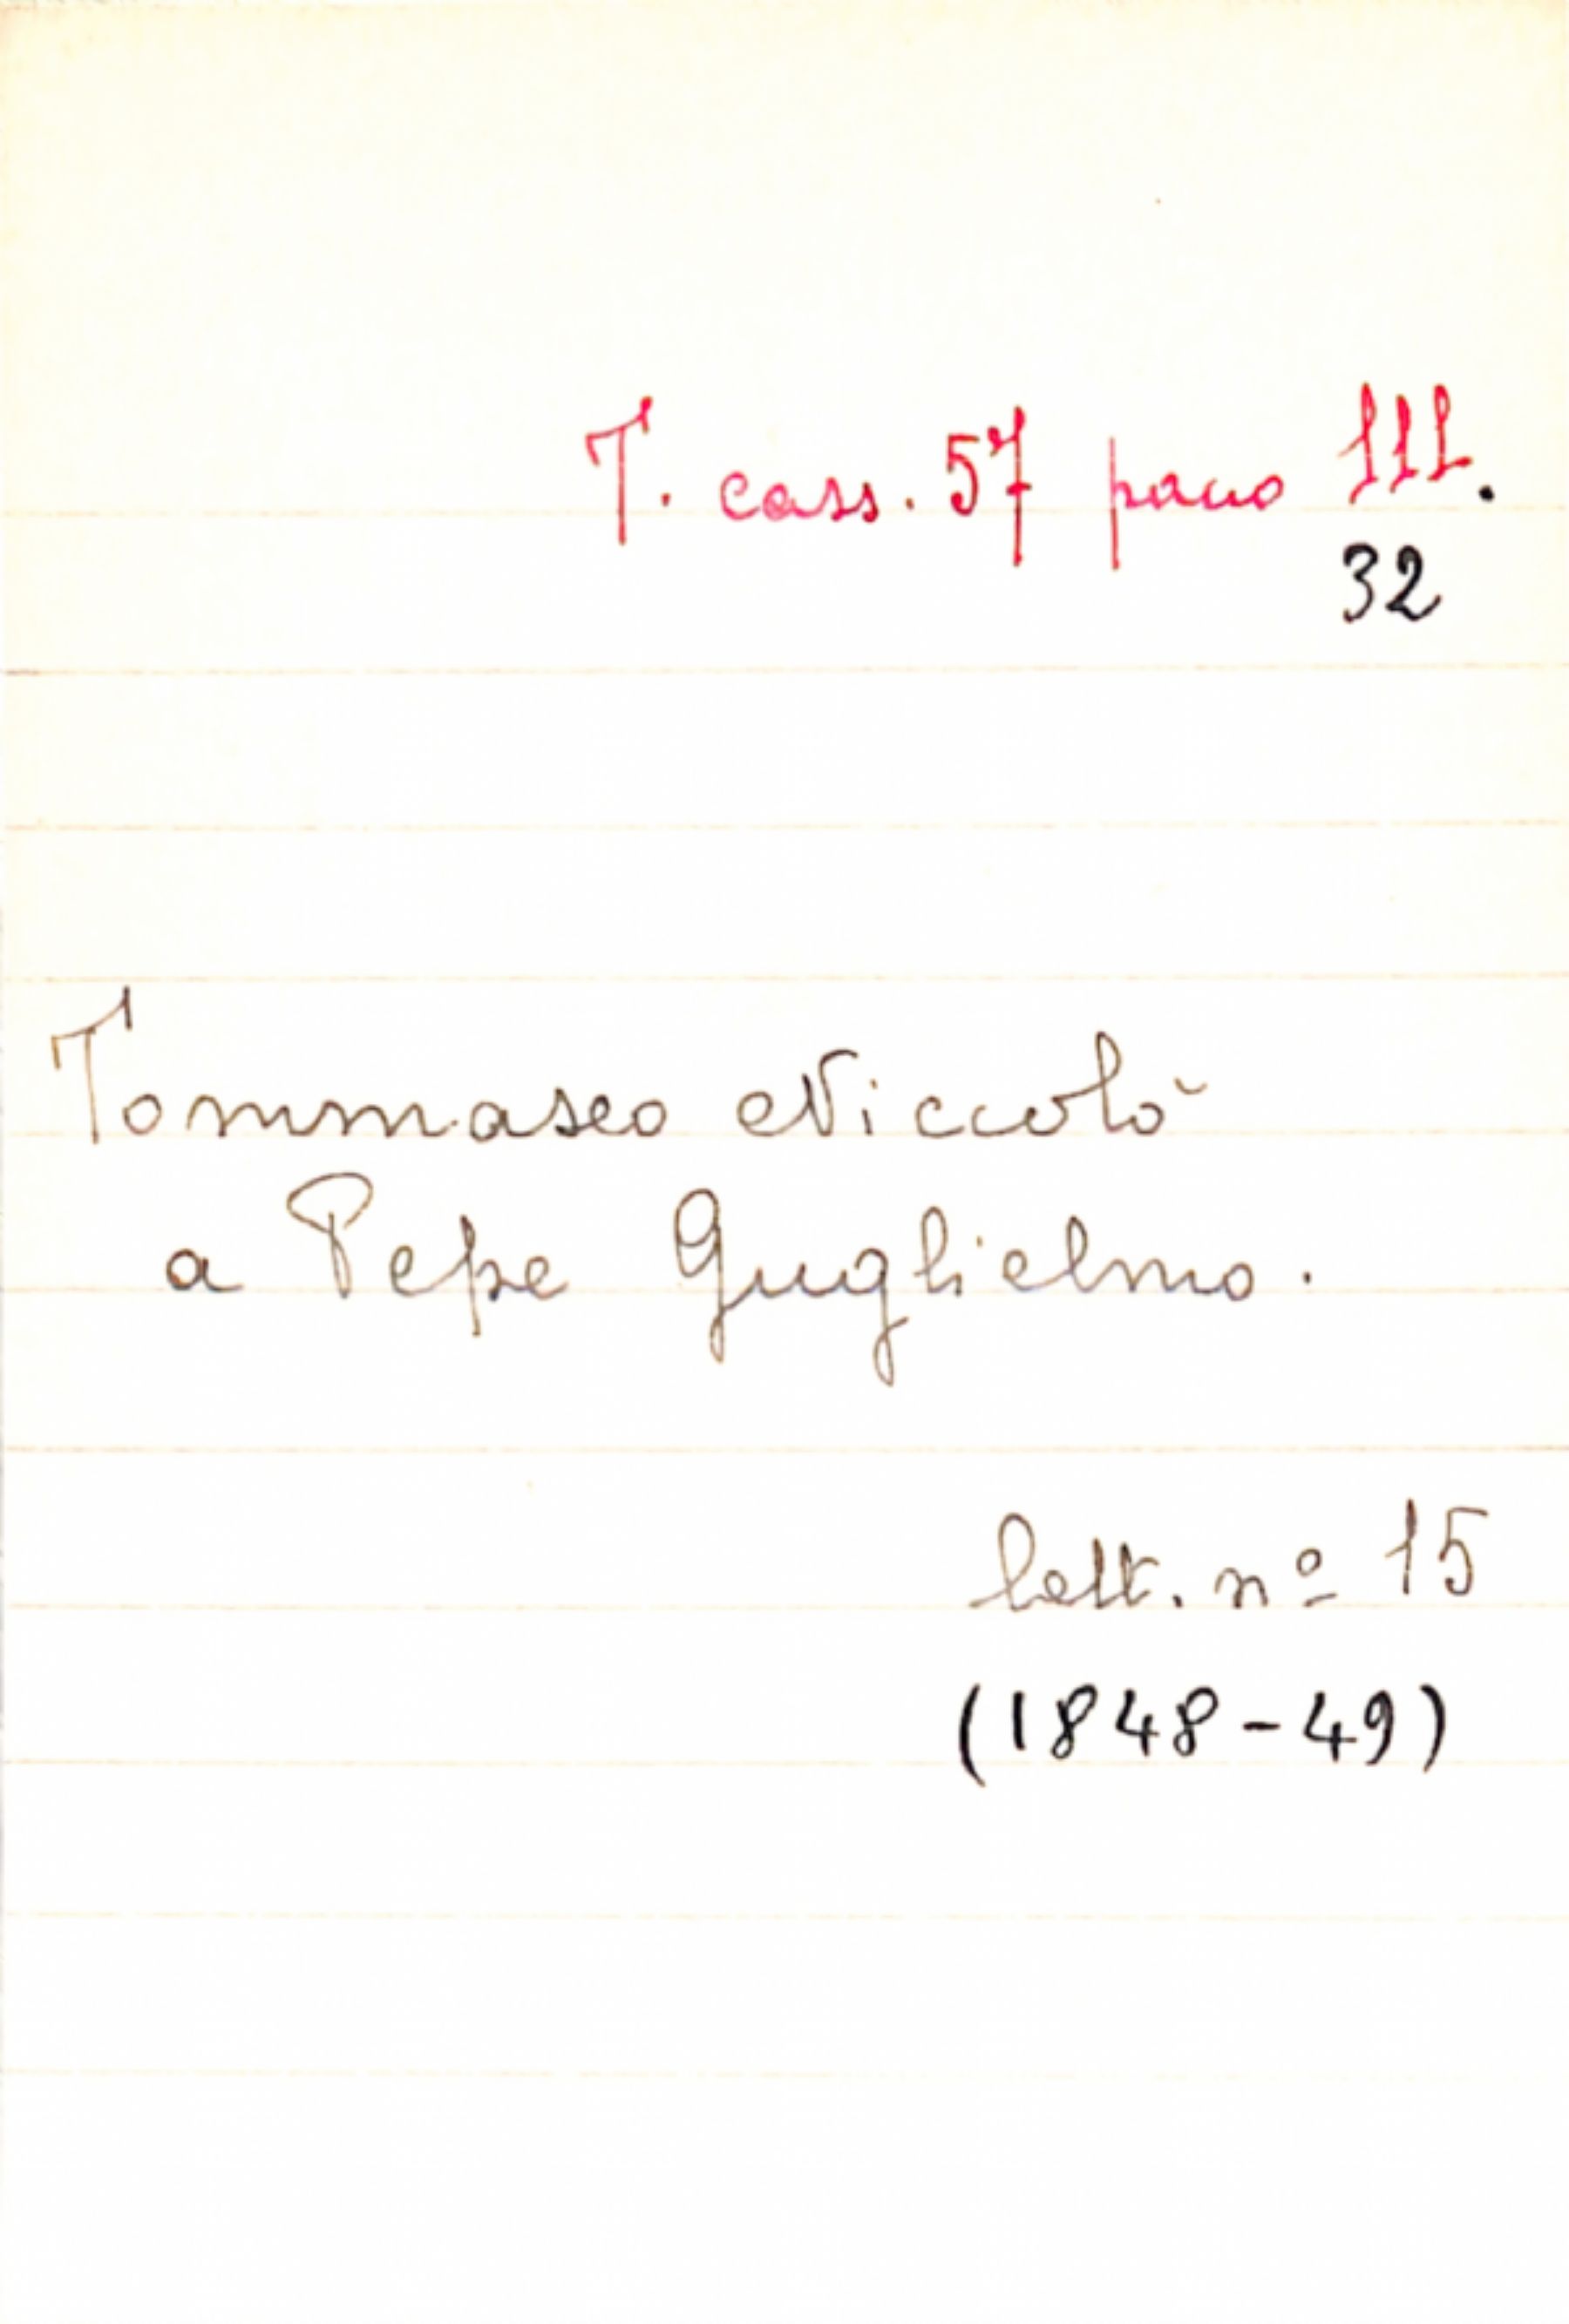 T. cass. 57 pacco III.
32
Tommaseo Niccolò
a Pepe Guglielmo.
lett. nº 15
(1848-49)